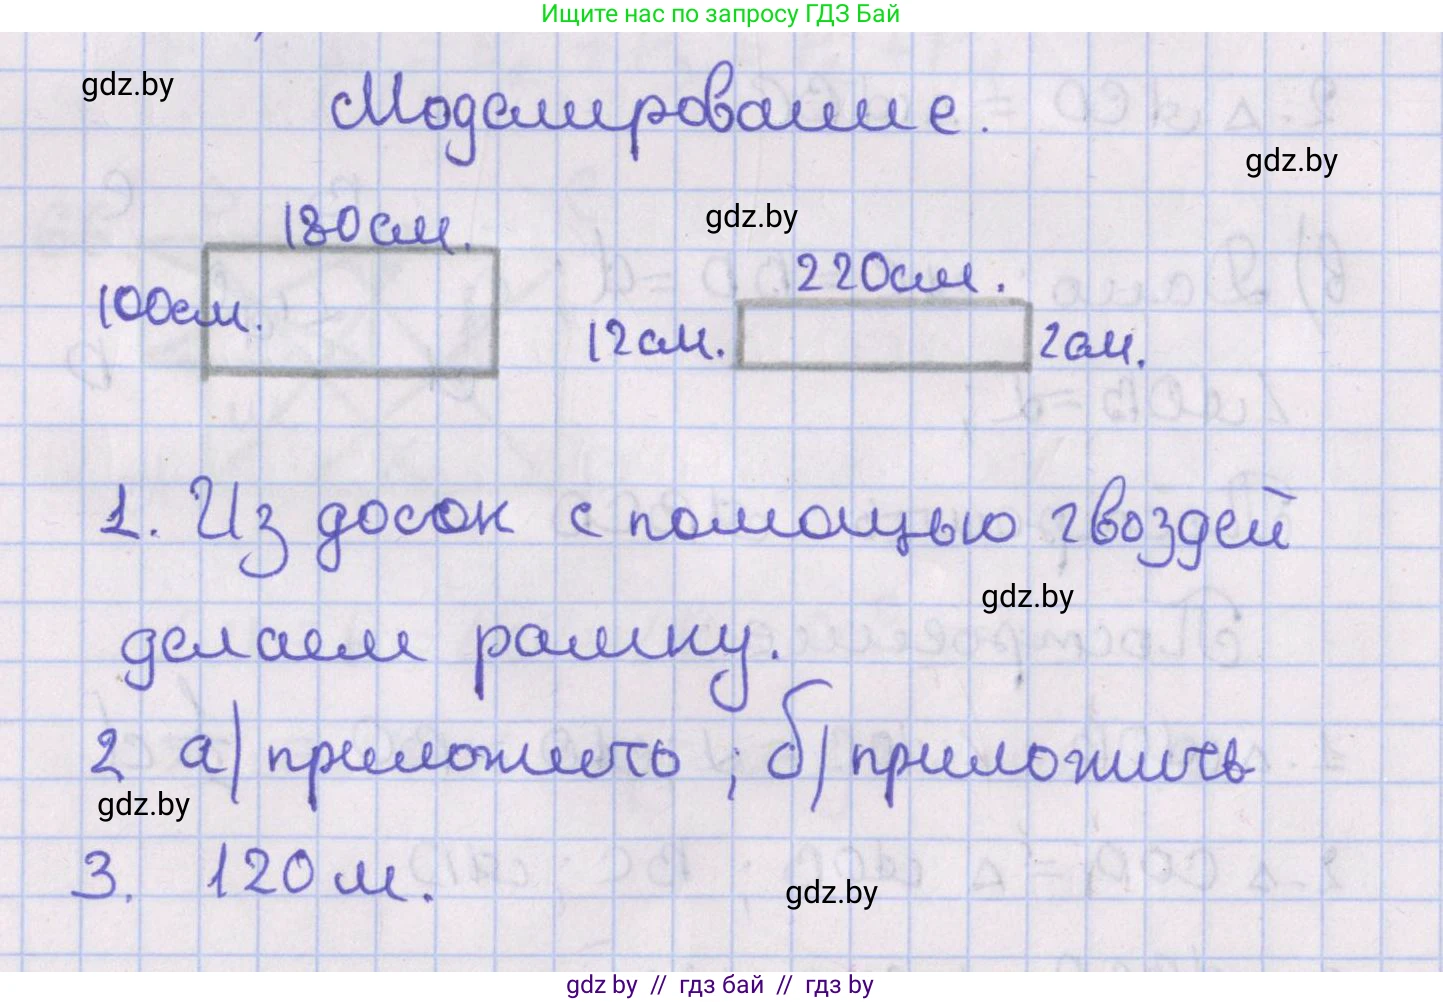 Ищите нас по запросу ГДЗ Бай
gdz.by
Моделирование.
gdz.by
180см.
gdz.by
220см.
100см.
12см.
2см.
1. Из досок с помощью гвоздей
gdz.by
делаем рамку.
2 а) приложить; б) приложить
gdz.by
3. 120 м.
gdz.by
gdz.by // гдз бай // гдз by